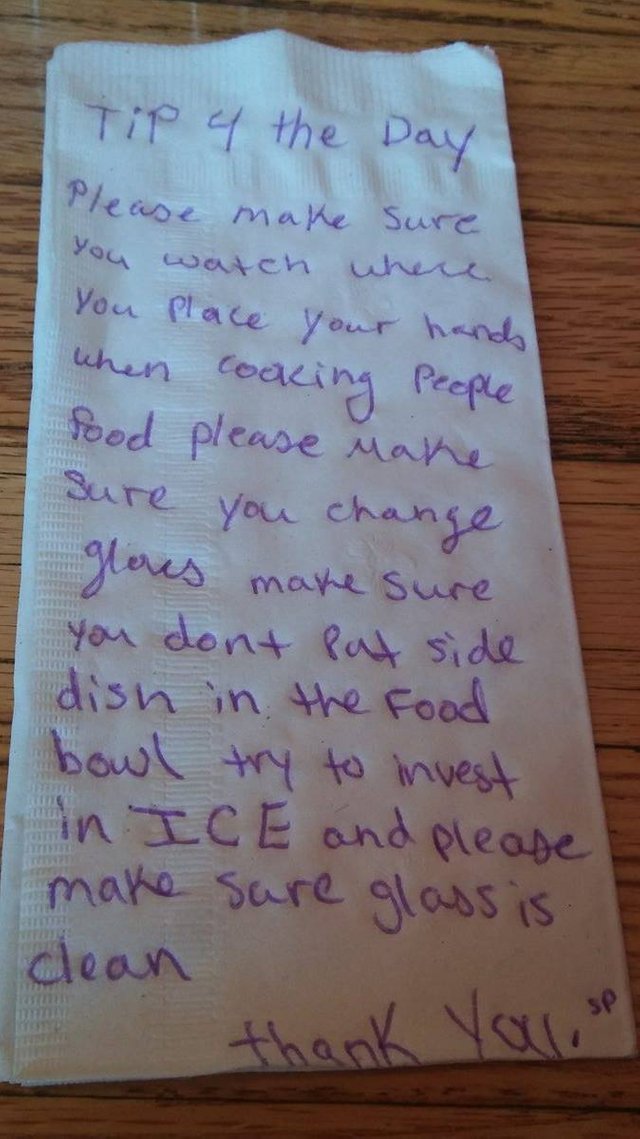 TiP 4 the Day
Please make sure
you watch where
you place your hands
when cooking People
food please Make
sure you change
gloves make sure
you dont Put side
dish in the Food
bowl try to invest
in ICE and please
make sure glass is
clean
thank You. SP